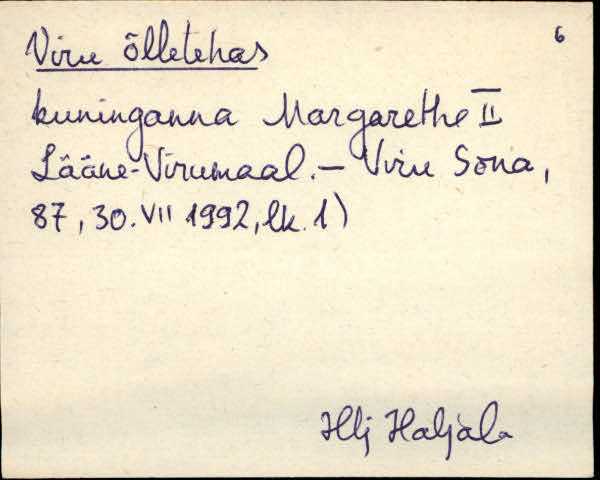 6
Viru õlletehas
kuninganna Margarethe II
Lääne-Virumaal. – Viru Sõna,
87, 30. VII 1992, lk. 1)
Hlj Haljala